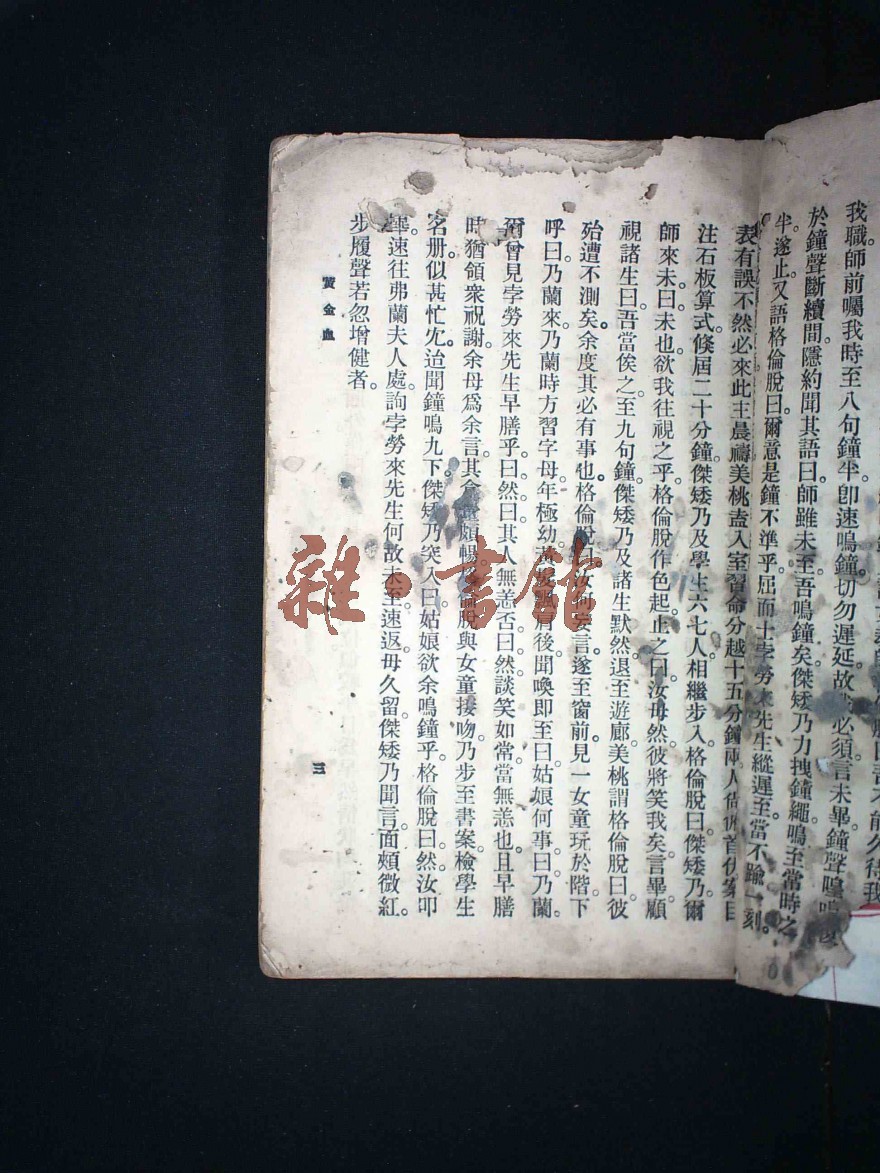 我職師前囑我時至八句鐘半卽速鳴鐘切勿遲延故我必須言未畢鐘聲喤
於鐘聲斷續間隱約聞其語曰師雖未至吾鳴鐘矣傑矮乃力拽鐘繩鳴至當時之
半遂止又語格倫脫曰爾意是鐘不準乎屈而士孛勞來先生縱遲至當不踰一刻。
表有誤不然必來此主晨禱美桃盍入室習命分越十五分鐘兩人俯首伏案目
注石板算式倏屆二十分鐘傑矮乃及學生六七人相繼步入格倫脫曰傑矮乃爾
師來未曰未也欲我往視之乎格倫脫作色起止之曰汝毋然彼將笑我矣言畢顧
視諸生曰吾當俟之至九句鐘傑矮乃及諸生默然退至遊廊美桃謂格倫脫曰彼
殆遭不測矣余度其必有事也格倫脫曰汝何妄言遂至窗前見一女童玩於階下
呼曰乃蘭來乃蘭時方習字母年極幼黃髮飄肩後聞喚即至曰姑娘何事曰乃蘭
爾曾見孛勞來先生早膳乎曰然曰其人無恙否曰然談笑如常當無恙也且早膳
時猶領衆祝謝余母爲余言其食量頗暢格倫脫與女童接吻乃步至書案檢學生
名册似甚忙冗迨聞鐘鳴九下傑矮乃突入曰姑娘欲余鳴鐘乎格倫脫曰然汝叩
畢速往弗蘭夫人處詢孛勞來先生何故未至速返毋久留傑矮乃聞言面頰微紅
步履聲若忽增健者。
黃金血
三
雜·書館